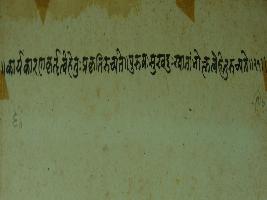 ॥कार्यकारणकर्तृत्वेहेतुःप्रकृतिरुच्यते॥पुरुषःसुखदुःखानांभोक्तृत्वेहेतुरुच्यते॥२१॥